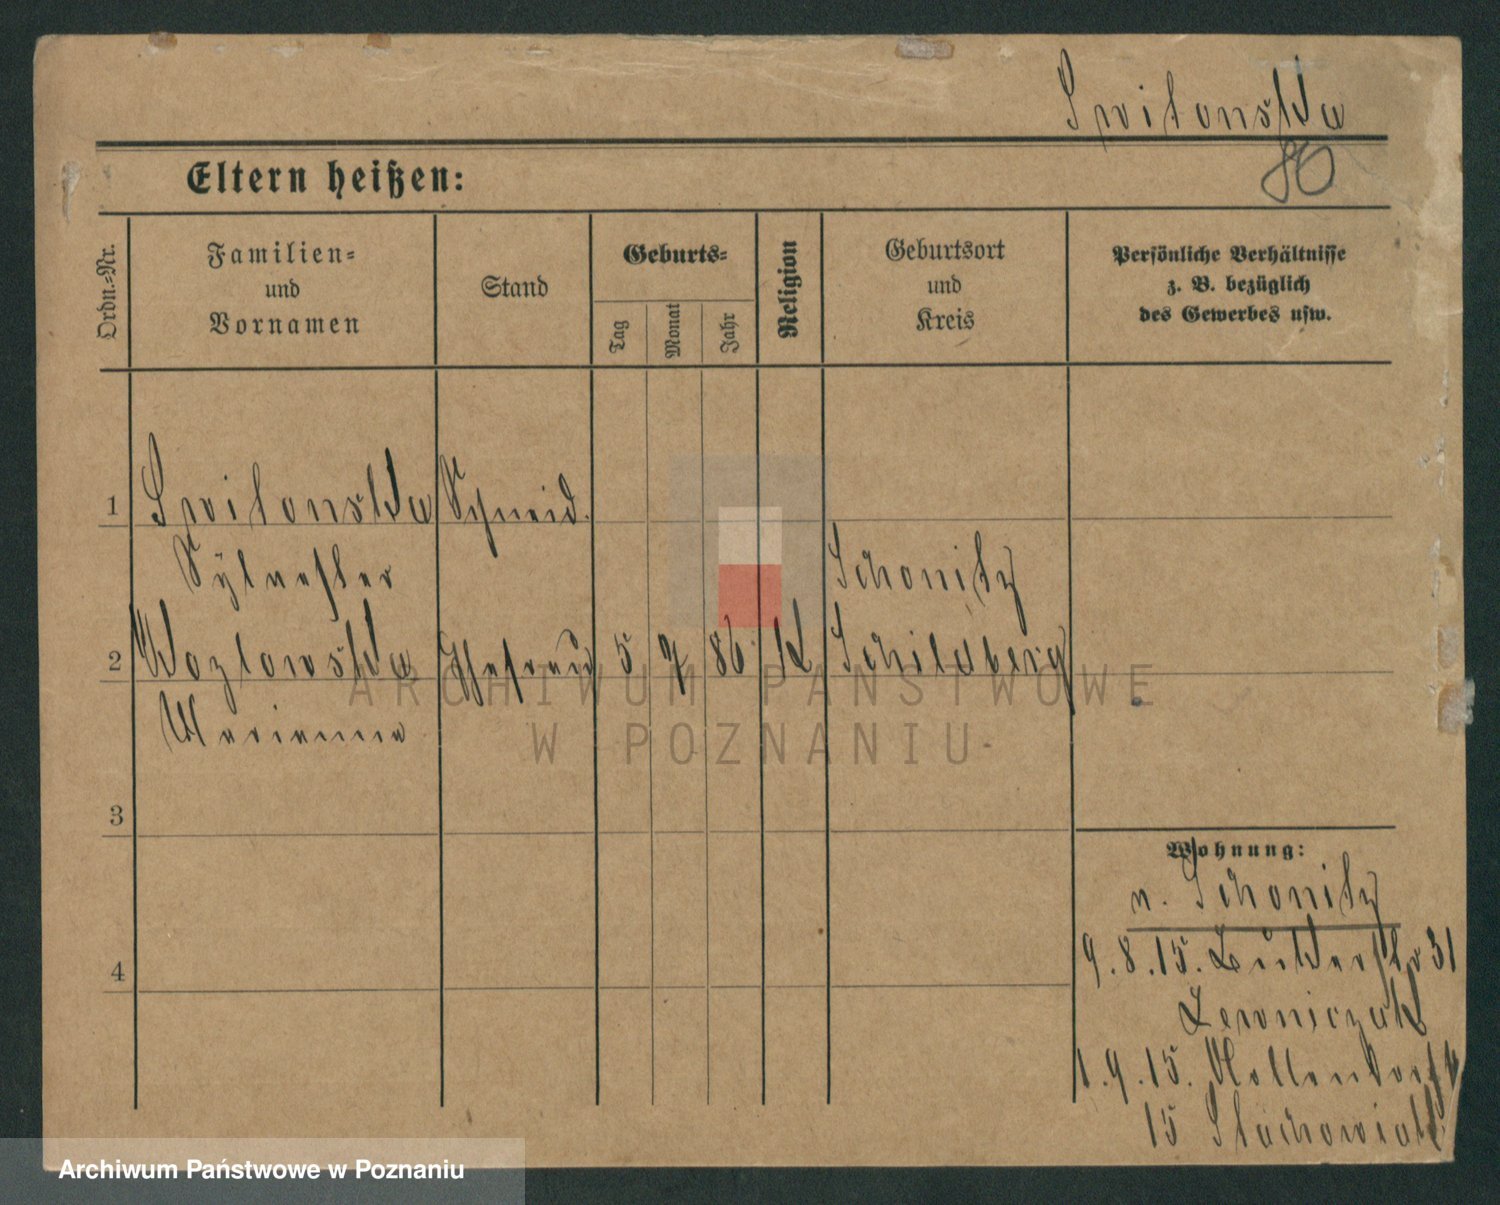 Switonska
86
Eltern heißen:
Ordn.-Nr.
Familien-
und
Vornamen
Stand
Geburts-
Tag
Monat
Jahr
Religion
Geburtsort
und
Kreis
Persönliche Verhältnisse
z. B. bezüglich
des Gewerbes usw.
1
Switonska
Schneid.
Sylvester
Schonitz
2
Kozlowska
Ehefrau
5
86
K
Schildberg
Marianna
3
4
Wohnung:
n. Schonitz
9.8.15.
31
1.9.15.
15 Stachowiak
ARCHIWUM PAŃSTWOWE
W POZNANIU
Archiwum Państwowe w Poznaniu